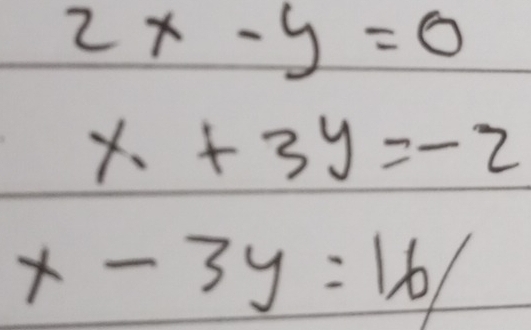 2x - y = 0
x + 3y = -2
x - 3y = 16/